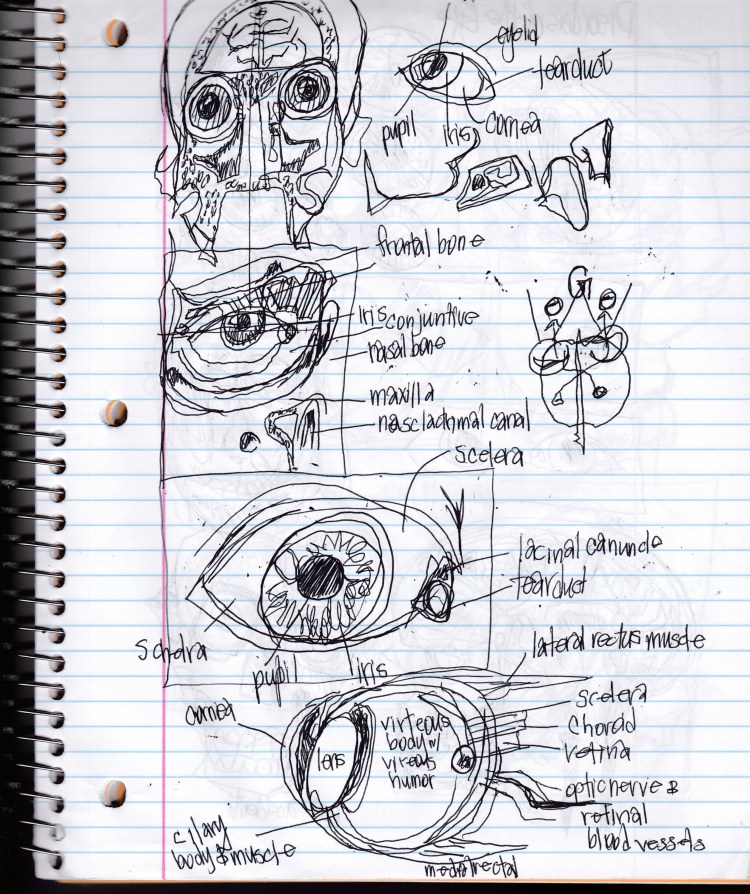 eyelid
tearduct
pupil
iris
cornea
frontal bone
iris
conjuntive
nasal bone
maxilla
nasclachmal canal
G
scelera
lacinal canundo
tearduct
Schelra
pupil
iris
lateral rectus muscle
cornea
lens
virteous
body w/
vireous
humor
scelera
choroid
retina
optic nerve &
retinal
blood vessels
cilary
body & muscle
medial rectal